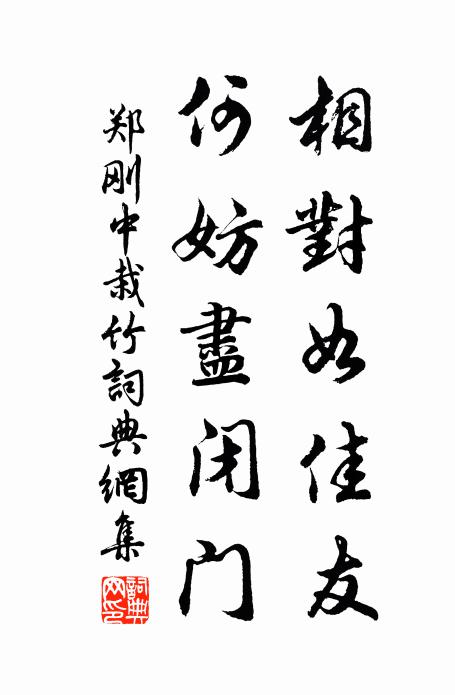 相對如佳友
何妨盡闭门
郑刚中栽竹詞典網集
詞典网印